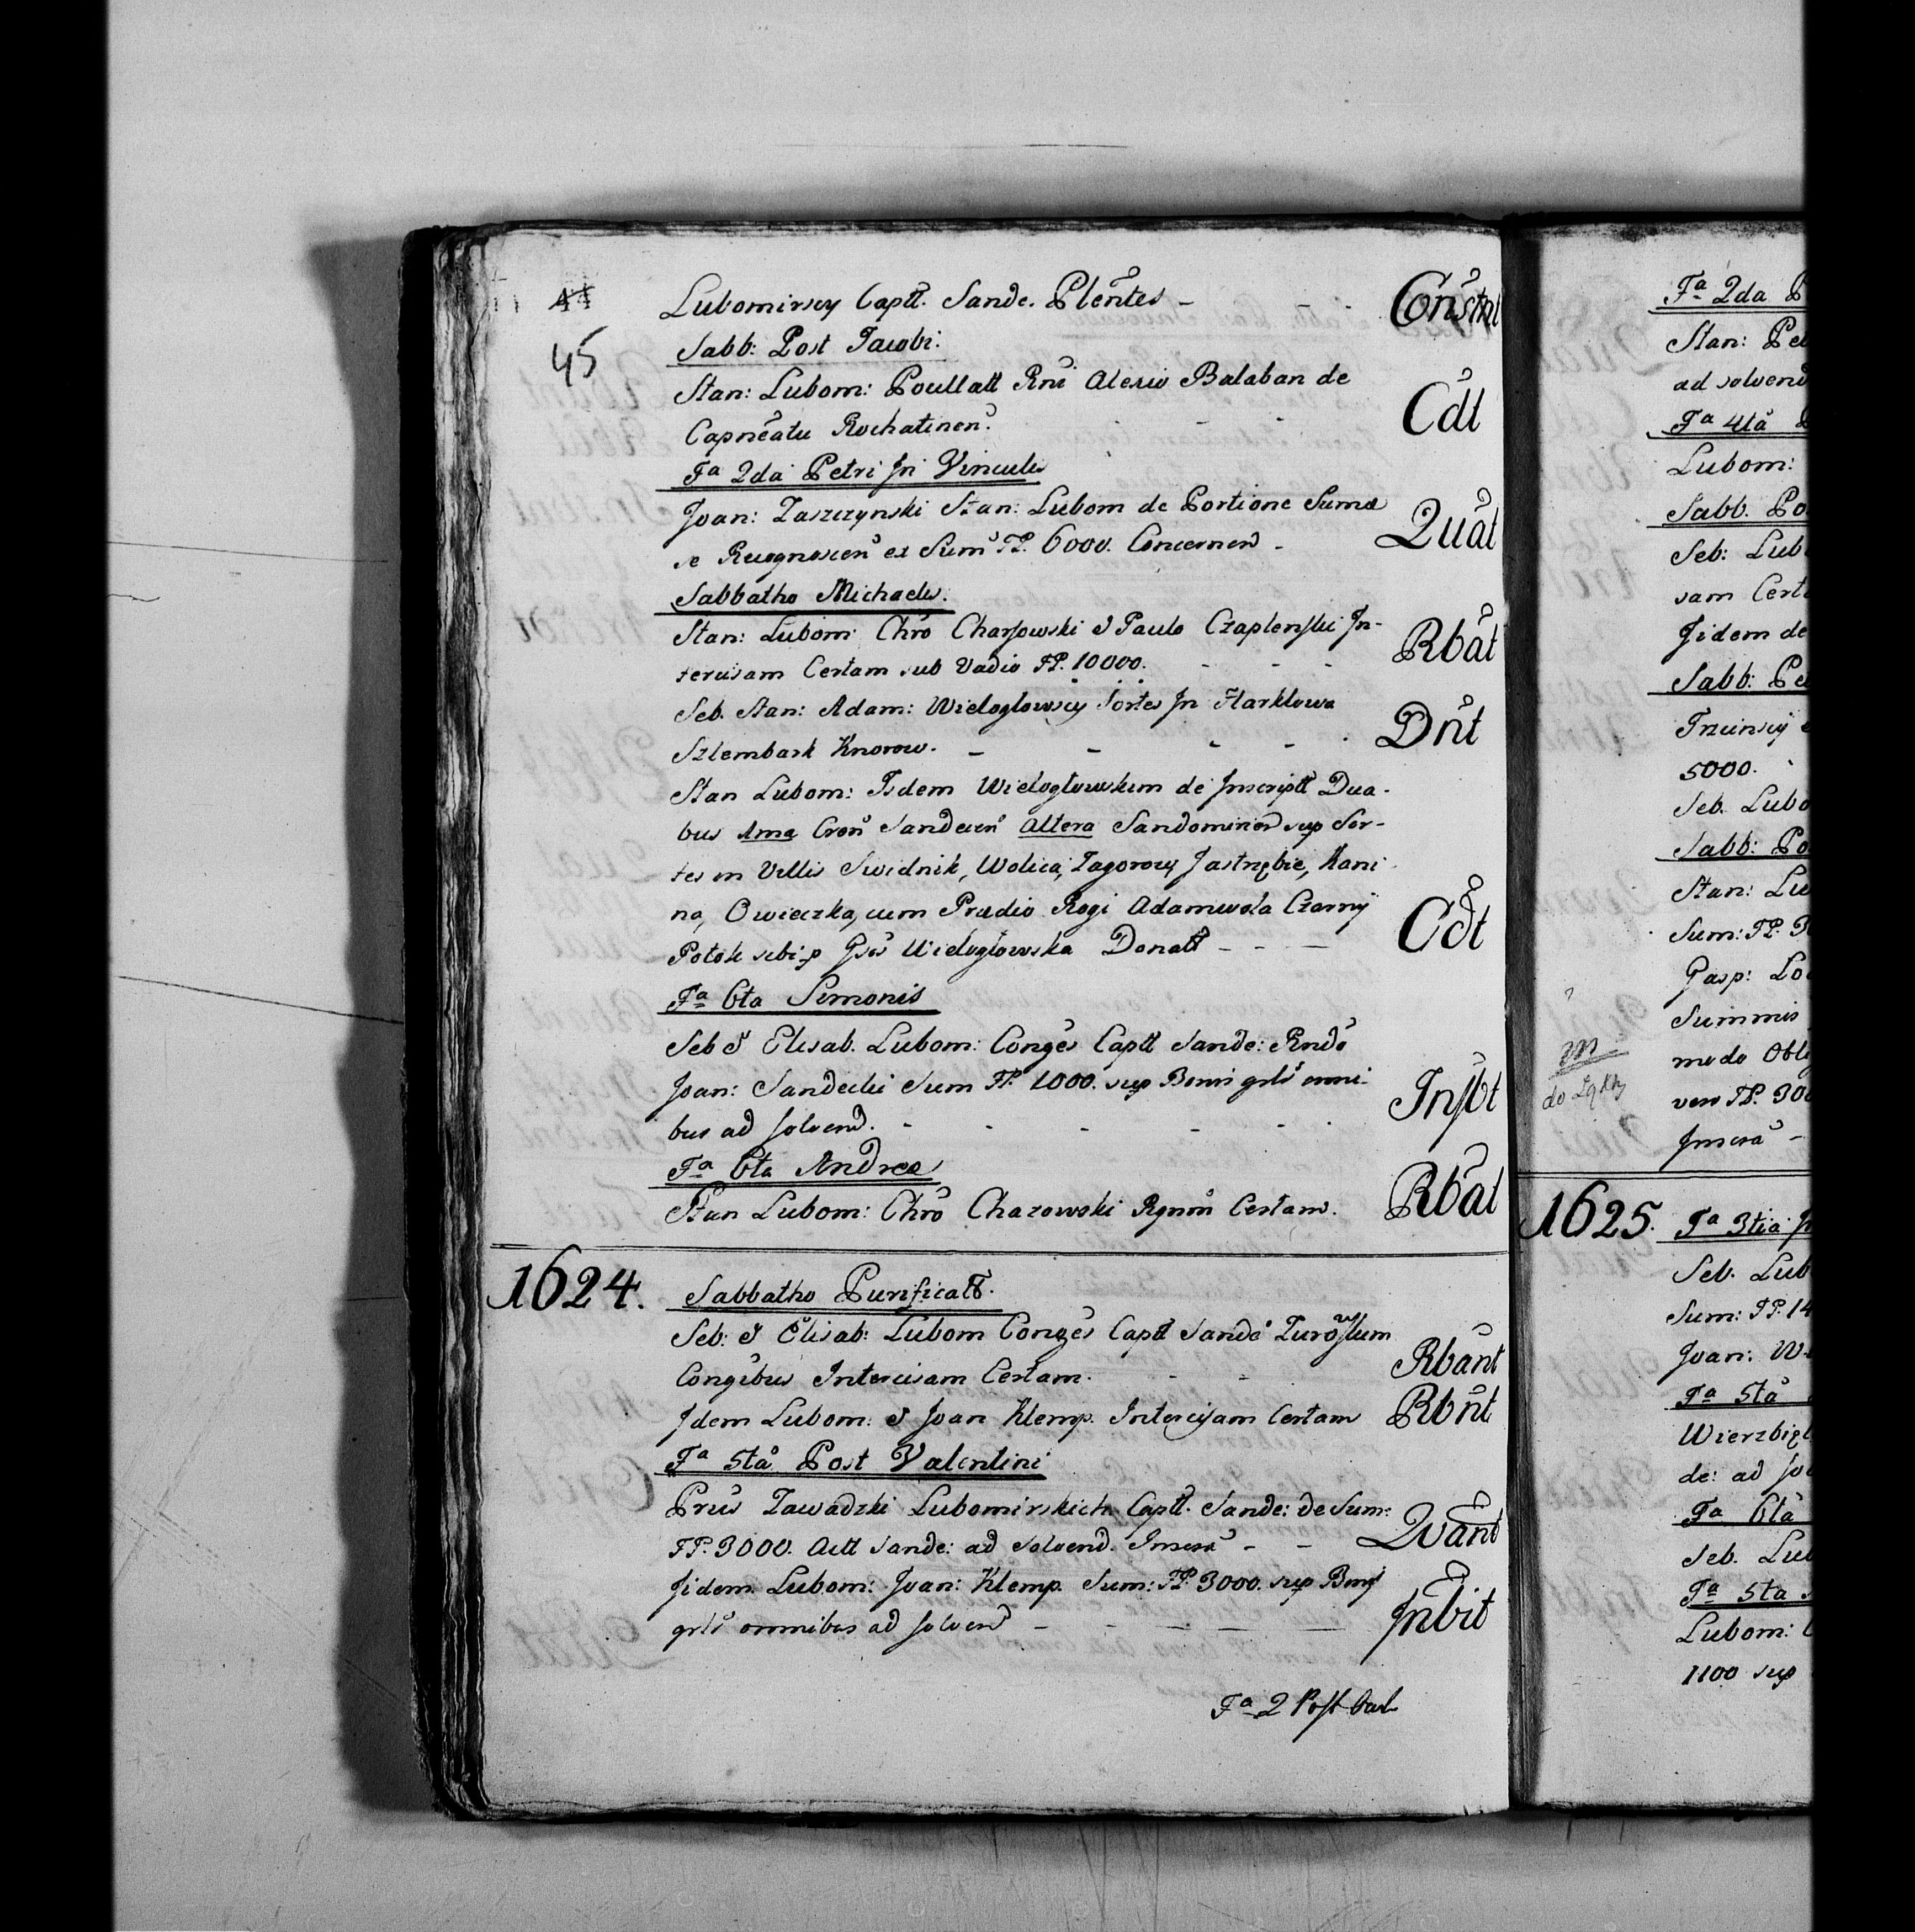 45
Lubomirscy Captt. Sande. Plentes - Constnt
Sabb: Post Jacobi.
Stan: Lubom: Poullatt Rni Alexio Balaban de
Capneatu Rochatinen. Cdt
Fa 2da Petri Jn Vinculis
Joan: Zaszczynski Stan: Lubom de Portione Suma
se Recognoscen ex Sum FP. 6000. Concernen - Quat
Sabbatho Michaelis.
Stan: Lubom: Chro Charzowski & Paulo Czaplenski Jn-
tercisam Certam sub Vadio FP. 10000. Rbat
Seb. Stan: Adam: Wieloglowscy Sortes Jn Harklowa
Szlembark Knorow. Dnt
Stan Lubom: Tsdem Wieloglowskim de Jnscriptt Dua-
bus Ima Cron Sandecen Altera Sandomirien sup Sor-
tes in Villis Swidnik, Wolica, Zagorow, Jastrzębie, Kani
na, Owieczka, cum Prædio Rogi Adamwola Czarny
Potok sibi p Gsos Wieloglowska Donatt - - - Cdt
Fa 6ta Simonis
Seb & Elisab. Lubom: Conges Captt Sande: Rndo
Joan: Sandecki Sum FP. 1000. sup Bonis grlr omni-
bus ad solvend. Jnsbt
Fa 6ta Andreæ
Stan Lubom: Chro Charowski Rgnm Certam. Rbat
1624. Sabbatho Purificatt.
Seb: & Elisab: Lubom Conges Captt Sande Zurowskim
Congibus Intercisam Certam. Rbant
Jdem Lubom: & Joan Klemp. Intercisam Certam Rbnt
Fa 5ta Post Valentini
Prus Zawadzki Lubomirskich Captt. Sande: de Sum:
FP. 3000. Actt Sande: ad solvend. Inscra - - Quant
Jidem Lubom: Joan: Klemp. Sum: FP. 3000. sup Bonis
grlr omnibus ad solvend - - - Jnbit
Fa 2 Post
Fa 2da
Stan:
ad solvend
Fa 4ta
Lubom:
Sabb. Po
Seb: Lub
sam Cert
Jidem de
Sabb:
5000.
Seb. Lubo
Sabb: Po
Stan: Lu
Sum: FP.
Gasp:
Summis
modo Obli
do Łąki
vero FP. 300
Jnscra -
1625. Fa 3tia Jn
Seb. Lub
Sum: FP. 14
Joan: W
Fa 5ta
Wierzbięt
de: ad sol
Fa 6ta
Seb. Lub
Fa 5ta
Lubom:
1100 sup